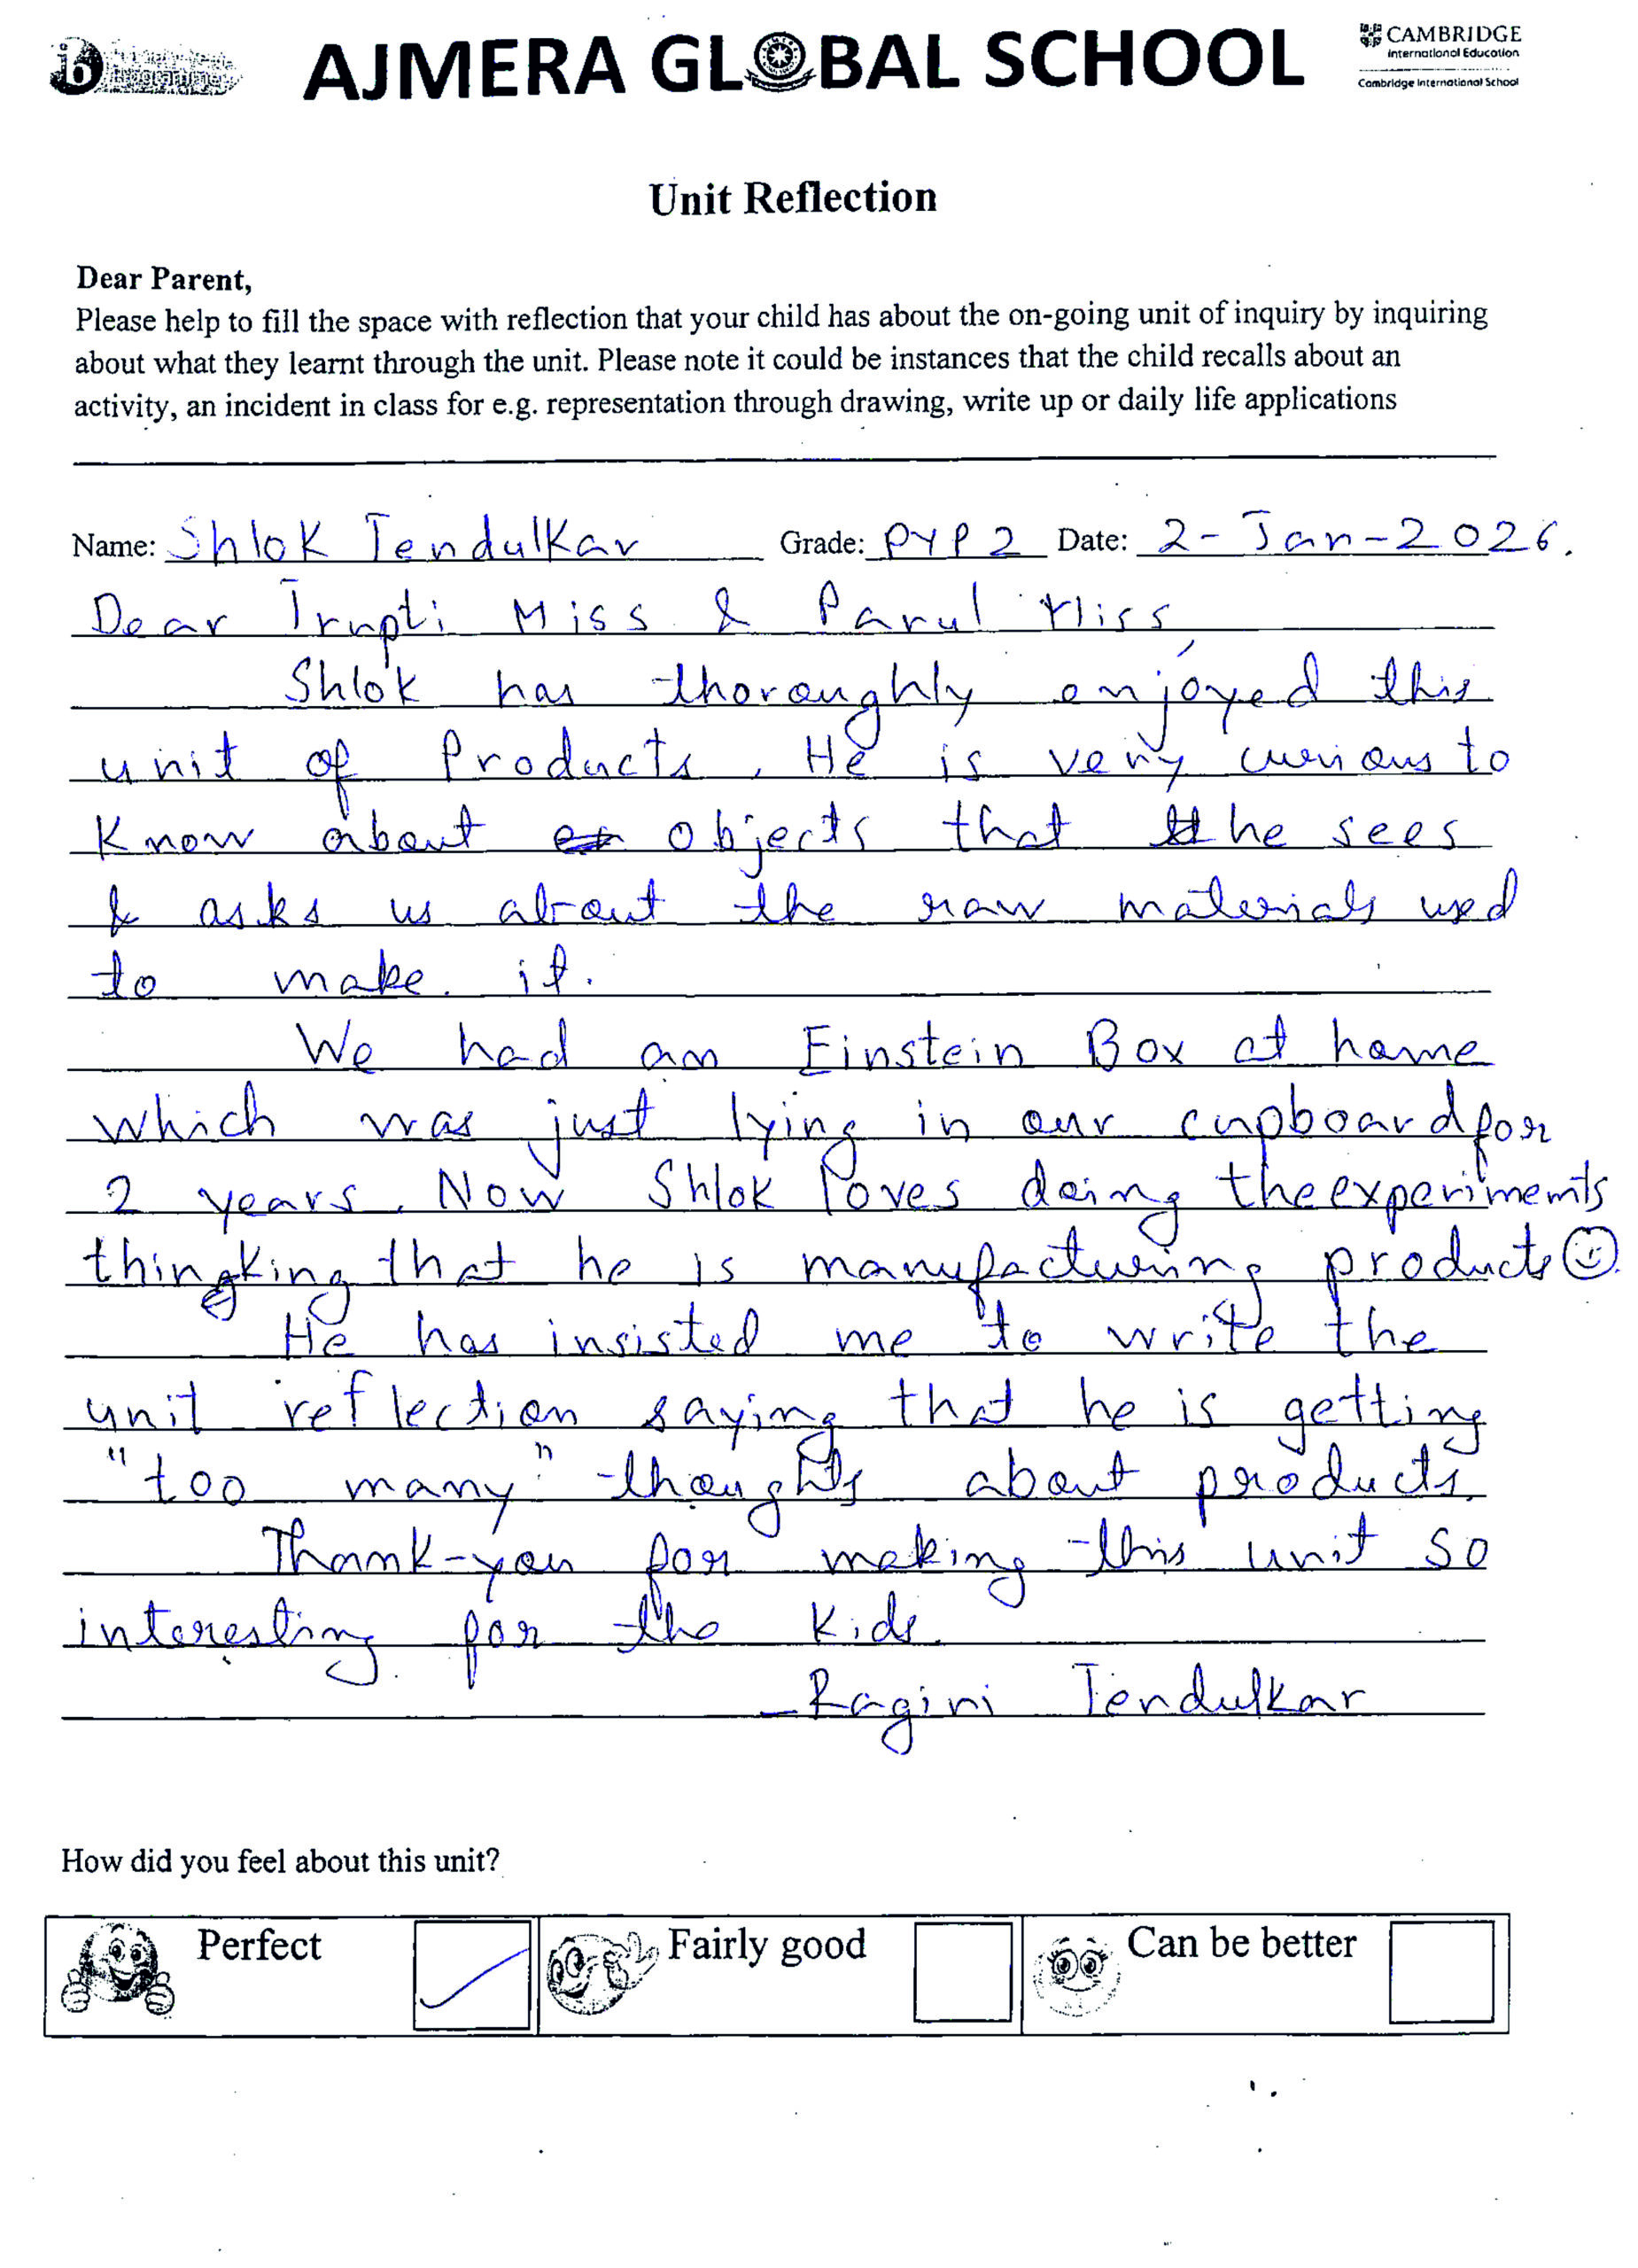 AJMERA GLOBAL SCHOOL
CAMBRIDGE
International Education
Cambridge International School
Unit Reflection
Dear Parent,
Please help to fill the space with reflection that your child has about the on-going unit of inquiry by inquiring
about what they learnt through the unit. Please note it could be instances that the child recalls about an
activity, an incident in class for e.g. representation through drawing, write up or daily life applications
Name: Shlok Tendulkar Grade: PYP2 Date: 2-Jan-2026.
Dear Trupti Miss & Parul Miss,
Shlok has thoroughly enjoyed this
unit of Products. He is very curious to
know about objects that he sees
& asks us about the raw materials used
to make it.
We had an Einstein Box at home
which was just lying in our cupboard for
2 years. Now Shlok loves doing the experiments
thingking that he is manufacturing products ☺.
He has insisted me to write the
unit reflection saying that he is getting
"too many" thoughts about products.
Thank-you for making this unit so
interesting for the kids.
- Ragini Tendulkar
How did you feel about this unit?
Perfect Fairly good Can be better